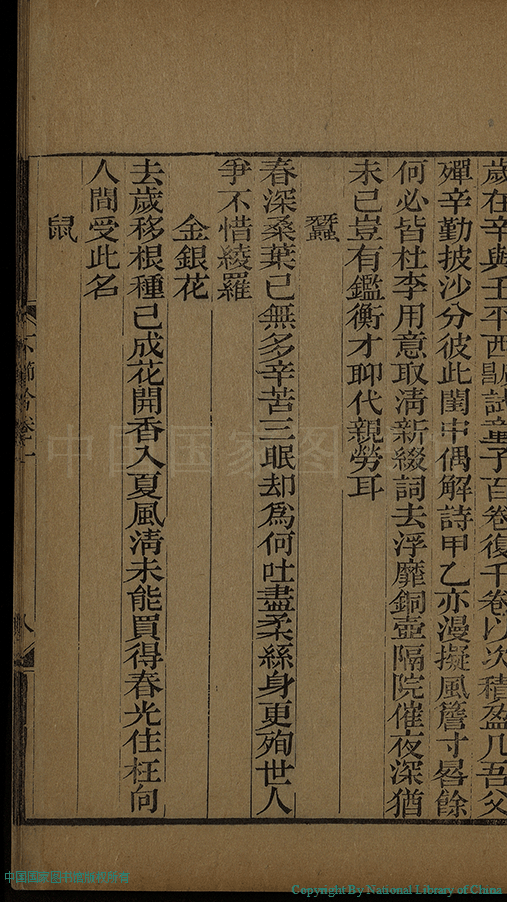 歲在辛與壬平西 試童子百卷復千卷以次積盈几吾父
殫辛勤披沙分彼此閨中偶解詩甲乙亦漫擬風簷寸晷餘
何必皆杜李用意取淸新綴詞去浮靡銅壺隔院催夜深猶
未已豈有鑑衡才聊代親勞耳
蠶
春深桑葉已無多辛苦三眠却爲何吐盡柔絲身更殉世人
爭不惜綾羅
金銀花
去歲移根種已成花開香入夏風淸未能買得春光住枉向
人間受此名
鼠
卷十一
八
中国国家图
中国国家图书馆版权所有
Copyright By National Library of China